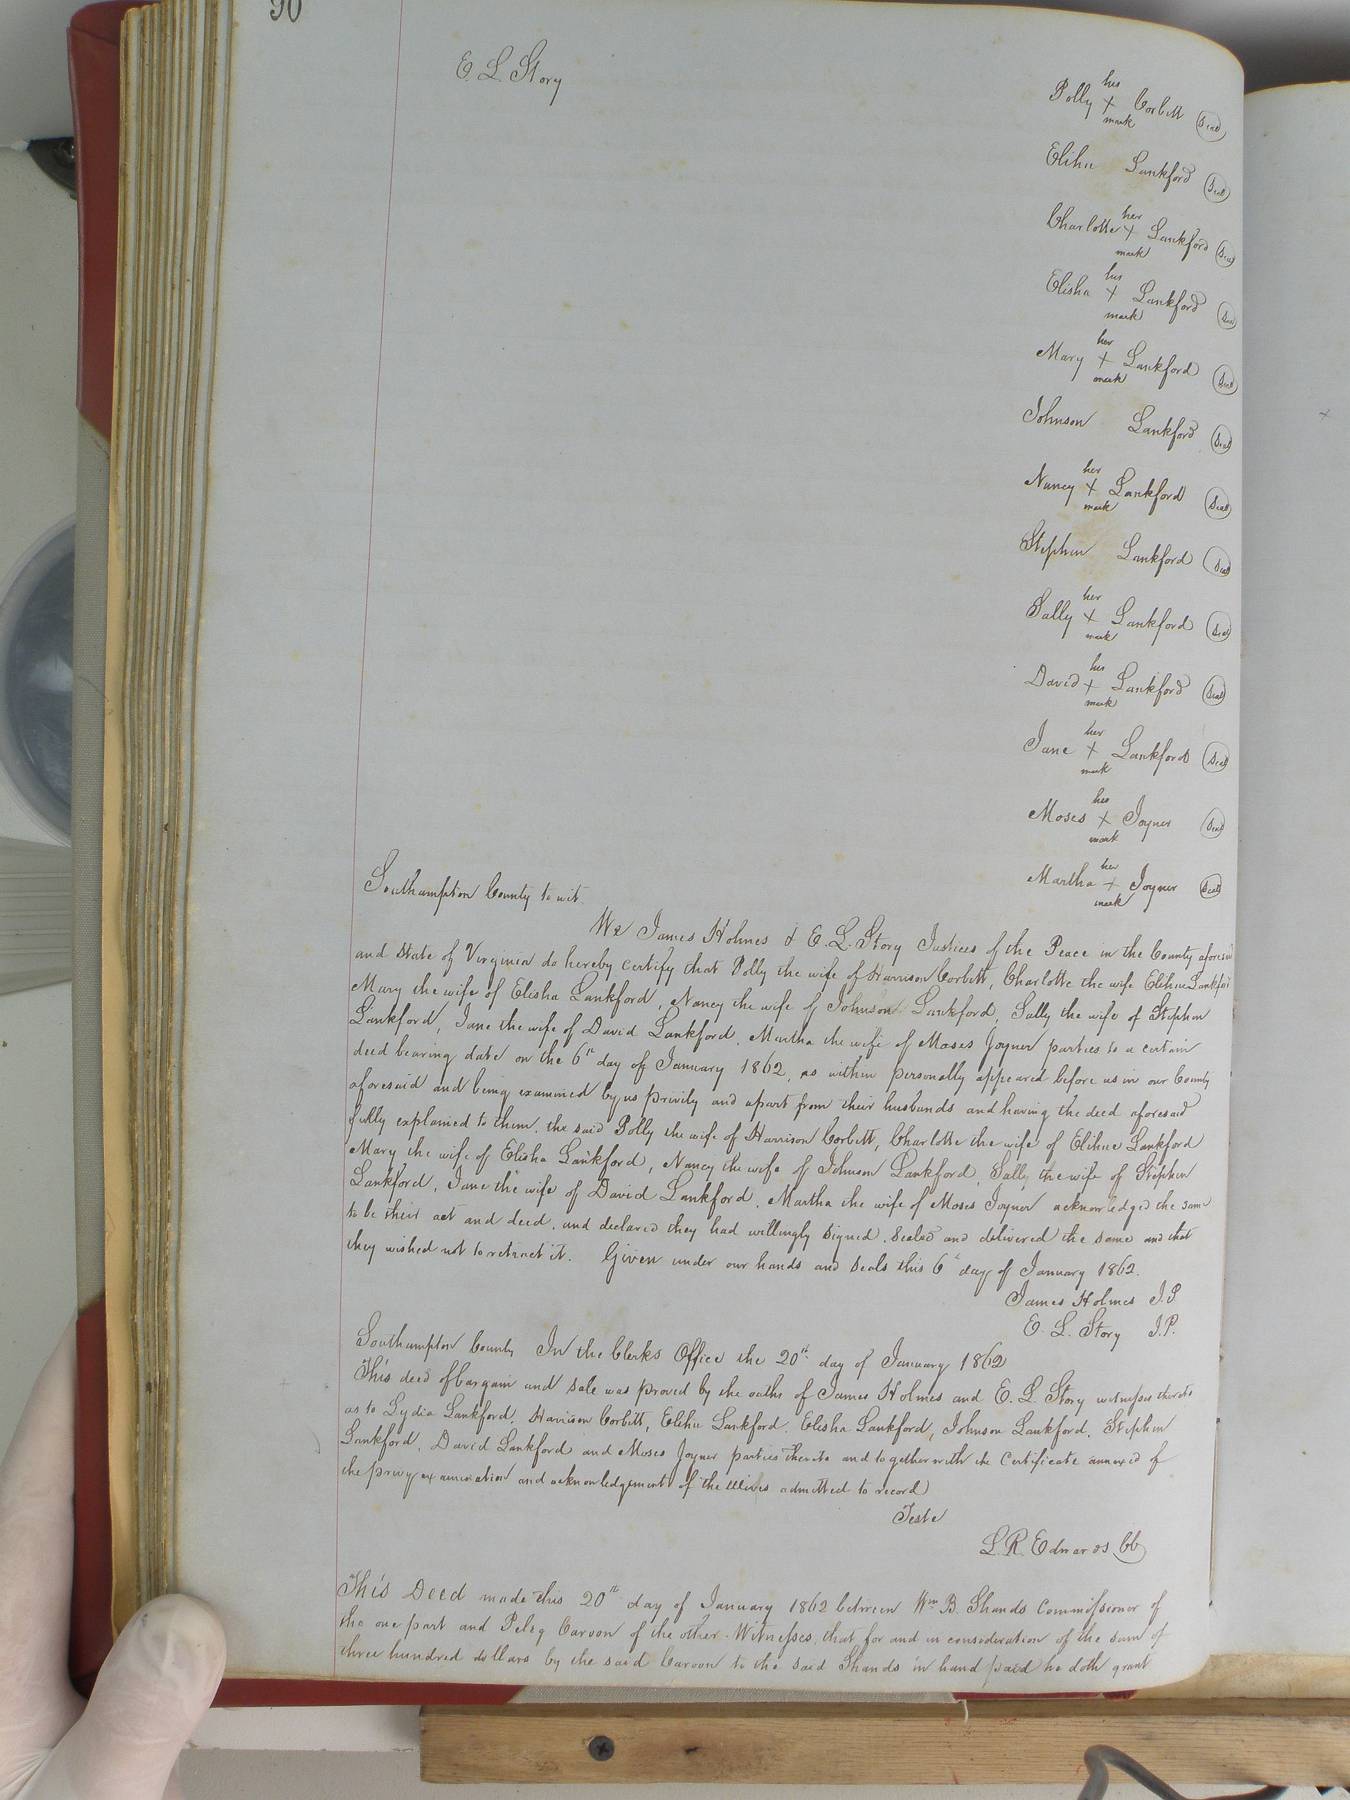 90
E. L. Story
his
Polly + Corbitt Seal
mark
Elihu Lankford Seal
her
Charlotte + Lankford Seal
mark
his
Elisha + Lankford Seal
mark
her
Mary + Lankford Seal
mark
Johnson Lankford Seal
her
Nancy + Lankford Seal
mark
Stephen Lankford Seal
her
Sally + Lankford Seal
mark
his
David + Lankford Seal
mark
her
Jane + Lankford Seal
mark
his
Moses + Joyner Seal
mark
her
Martha + Joyner Seal
mark
Southampton County to wit.
We James Holmes & E. L. Story Justices of the Peace in the County aforesaid
and State of Virginia do hereby certify that Polly the wife of Harrison Corbitt, Charlotte the wife Elihue Lankford
Mary the wife of Elisha Lankford, Nancy the wife of Johnson Lankford, Sally the wife of Stephen
Lankford, Jane the wife of David Lankford, Martha the wife of Moses Joyner parties to a certain
deed bearing date on the 6th day of January 1862, as within personally appeared before us in our County
aforesaid and being examined by us privily and apart from their husbands and having the deed aforesaid
fully explained to them, the said Polly the wife of Harrison Corbitt, Charlotte the wife of Elihue Lankford
Mary the wife of Elisha Lankford, Nancy the wife of Johnson Lankford, Sally the wife of Stephen
Lankford, Jane the wife of David Lankford, Martha the wife of Moses Joyner acknowledged the same
to be their act and deed, and declared they had willingly signed, sealed and delivered the same and that
they wished not to retract it. Given under our hands and seals this 6th day of January 1862.
James Holmes J.P
E. L. Story J.P.
Southampton County In the Clerks Office the 20th day of January 1862
This deed of bargain and sale was proved by the oaths of James Holmes and E. L. Story witnesses thereto
as to Lydia Lankford, Harrison Corbitt, Elihu Lankford, Elisha Lankford, Johnson Lankford, Stephen
Lankford, David Lankford and Moses Joyner parties thereto and together with the Certificate annexed of
the privy examination and acknowledgement of the wives admitted to record
Teste
L. R. Edwards CC
This Deed made this 20th day of January 1862 between Wm B. Shands Commissioner of
the one part and Peleg Carson of the other Witnesses, that for and in consideration of the sum of
three hundred dollars by the said Carson to the said Shands in hand paid he doth grant